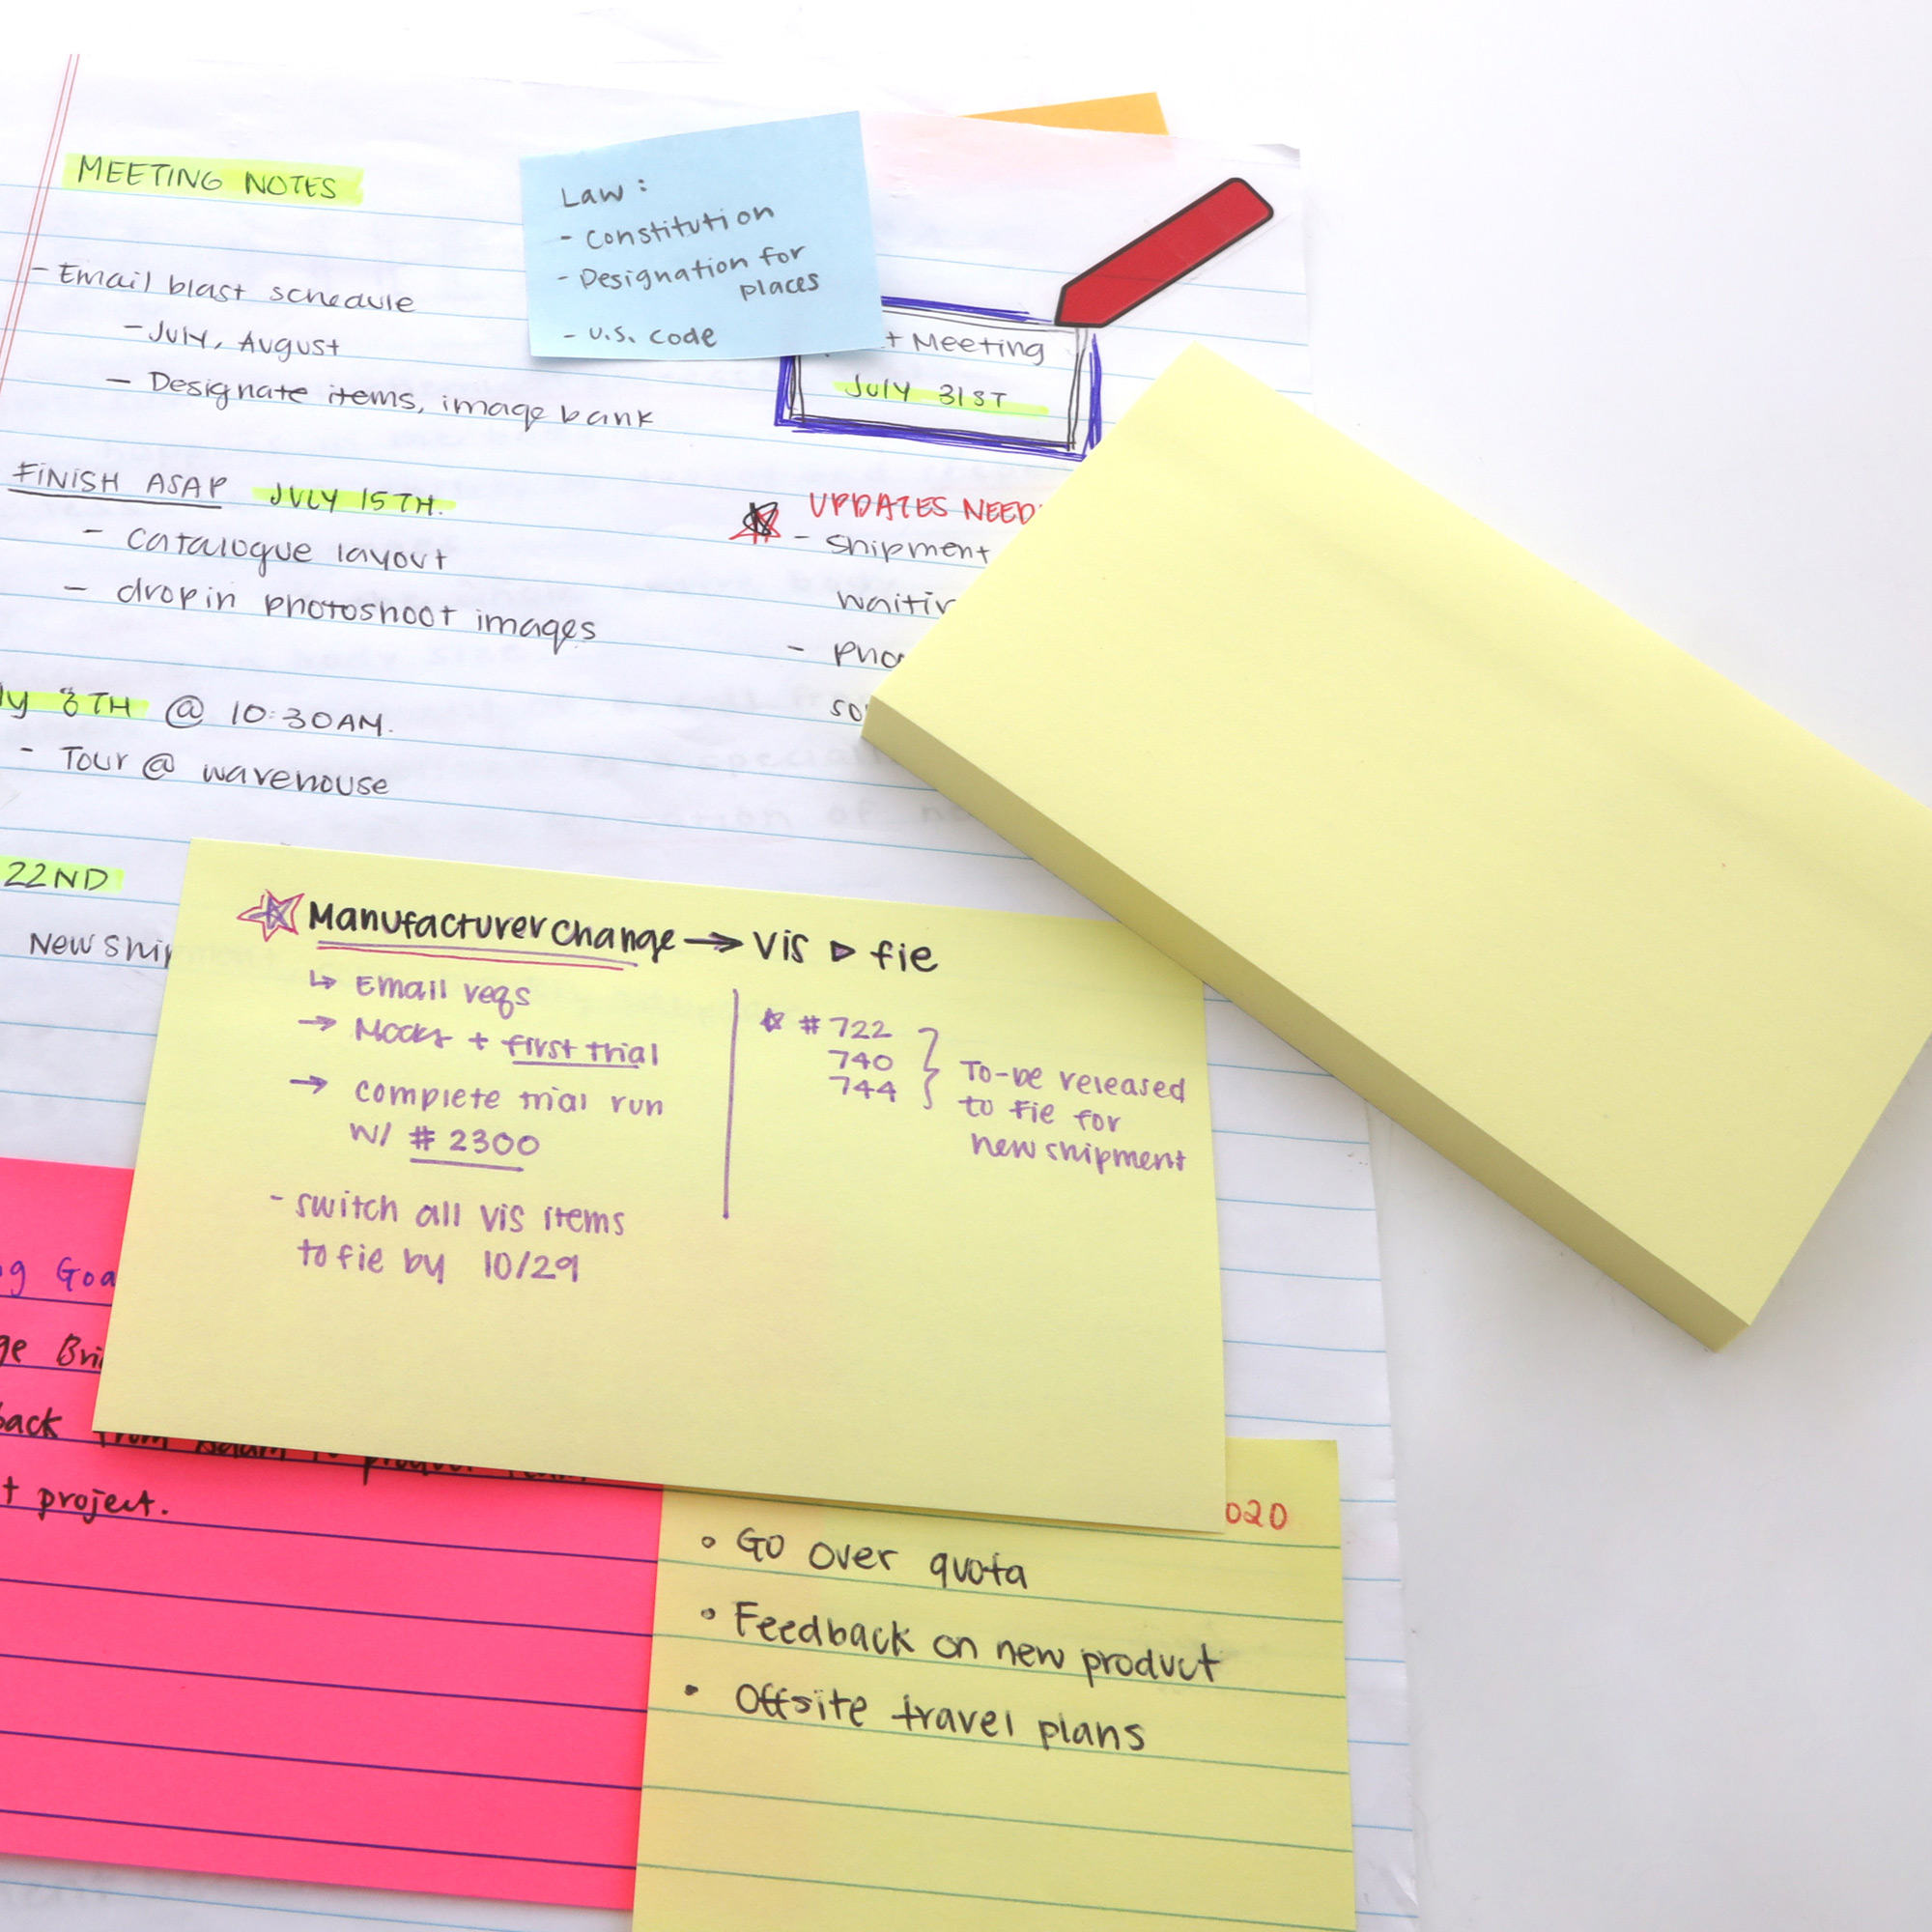 MEETING NOTES
- Email blast schedule
- July, August
- Designate items, image bank
FINISH ASAP JULY 15TH.
- catalogue layout
- drop in photoshoot images
ly 8TH @ 10:30AM.
- Tour @ warehouse
22ND
New ship
Law:
- Constitution
- Designation for
places
- U.S. Code
t Meeting
July 31ST
UPDATES NEED
- Shipment
waitin
- Pho
so
Manufacturer change → Vis ▷ fie
↳ Email reqs
→ Mocks + first trial
→ complete trial run
W/ # 2300
- switch all vis items
to fie by 10/29
☆ # 722
740
744
To-be released
to fie for
new shipment
g Goa
ge Bri
back from Adam to product
t project.
020
• Go over quota
• Feedback on new product
• Offsite travel plans